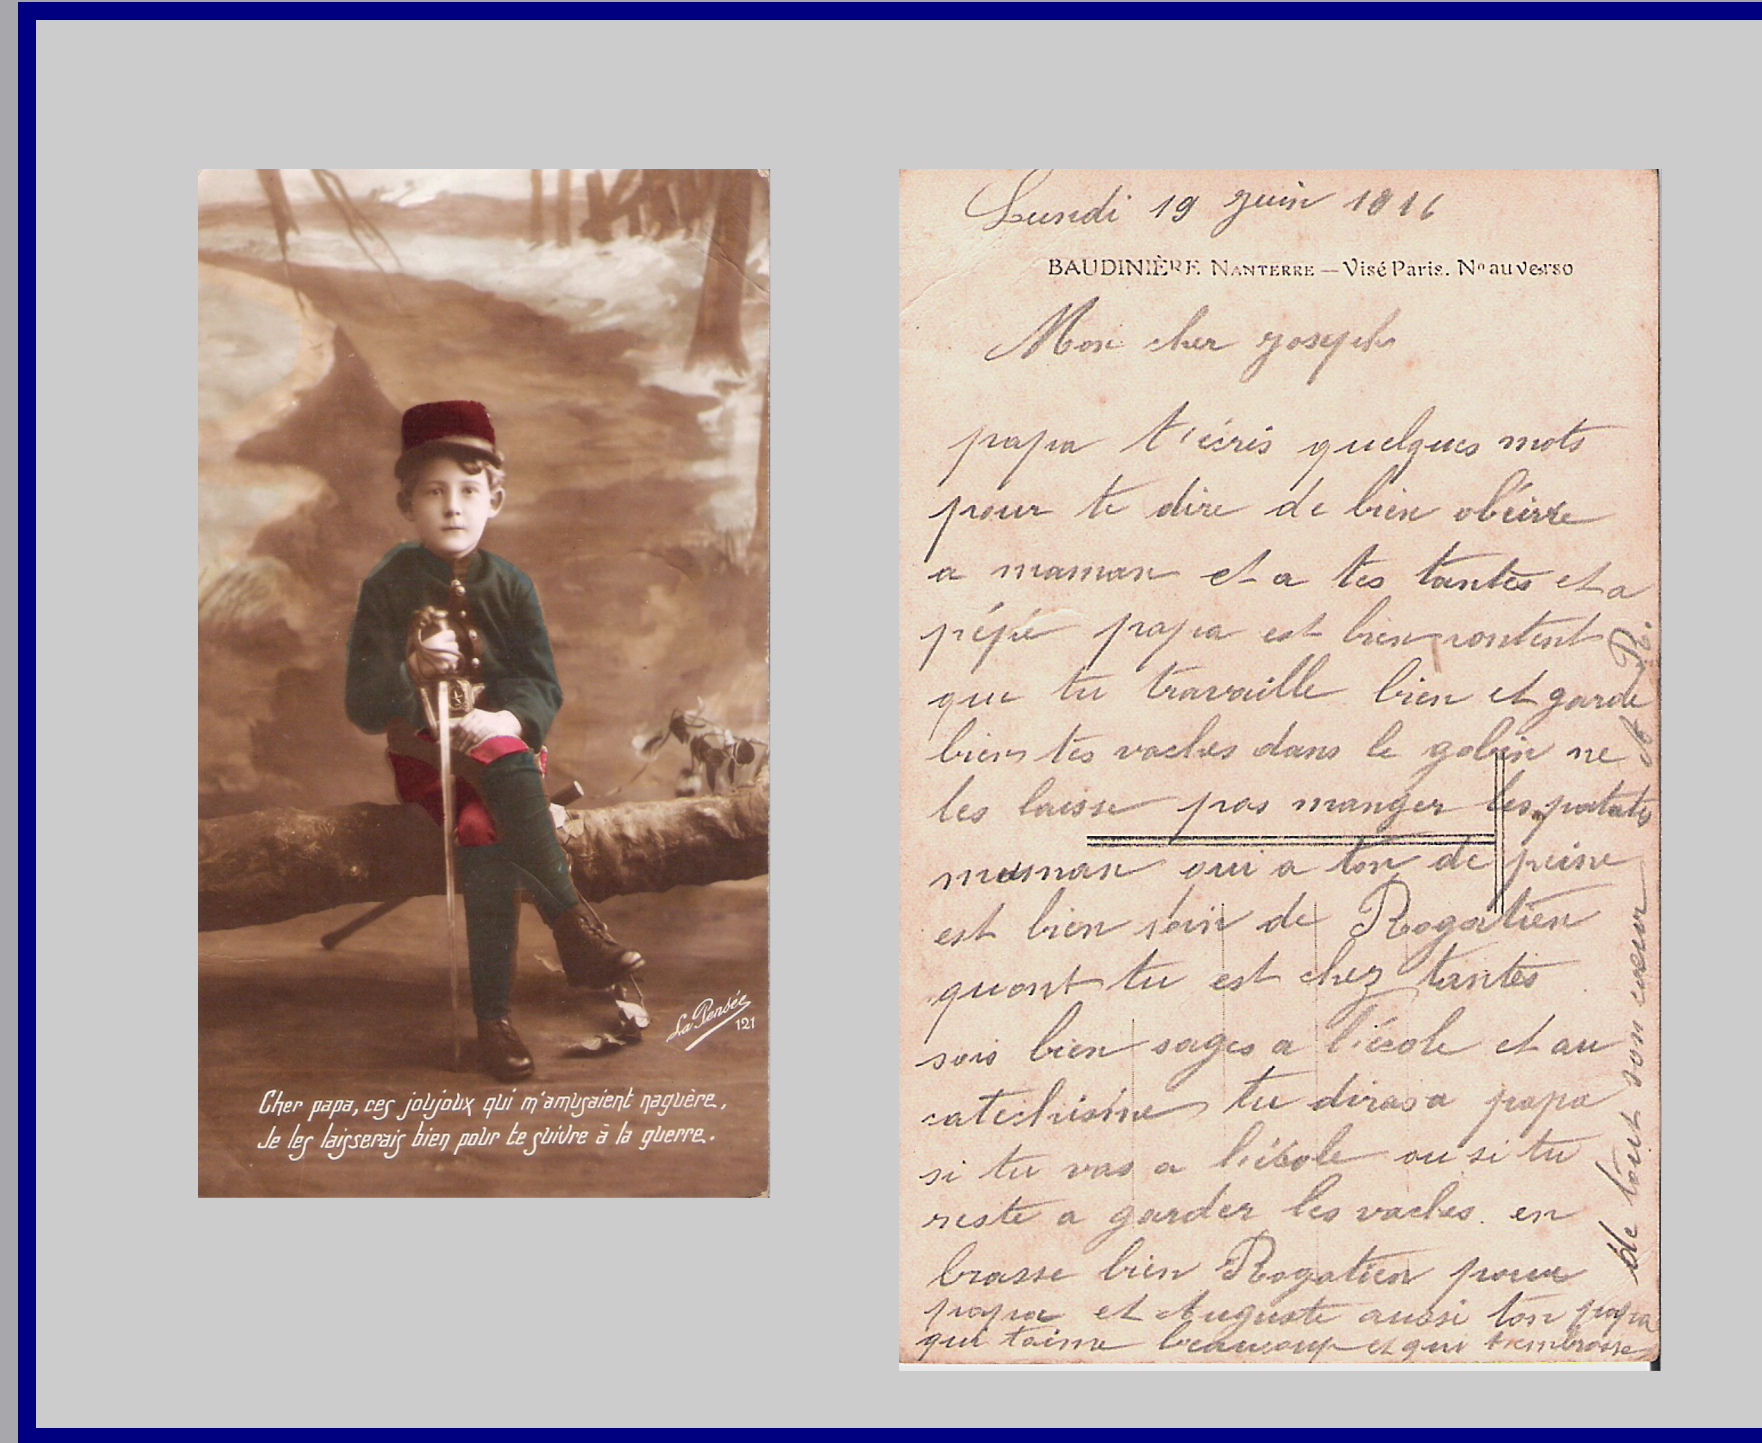 La Pensée
121
Cher papa, ces joujoux qui m'amusaient naguère,
Je les laisserais bien pour te suivre à la guerre.
Lundi 19 juin 1916
BAUDINIÈRE NANTERRE — Visé Paris. Nº au verso
Mon cher joseph
papa t'écris quelques mots
pour te dire de bien obéirre
a maman et a tes tantes et a
pépé papa est bien content
que tu travaille bien et garde
biens tes vaches dans le ne
les laisse pas manger les patates
maman qui a ton de peine
est bien soin de Rogatien
quant tu est chez tantes
sois bien sages a l'école et au
catechisme tu diras a papa
si tu vas a l'école ou si tu
reste a garder les vaches. en
brasse bien Rogatien pour
papa et Auguste aussi ton papa
qui taime beaucoup et qui tembrasse
de tout son cœur R.